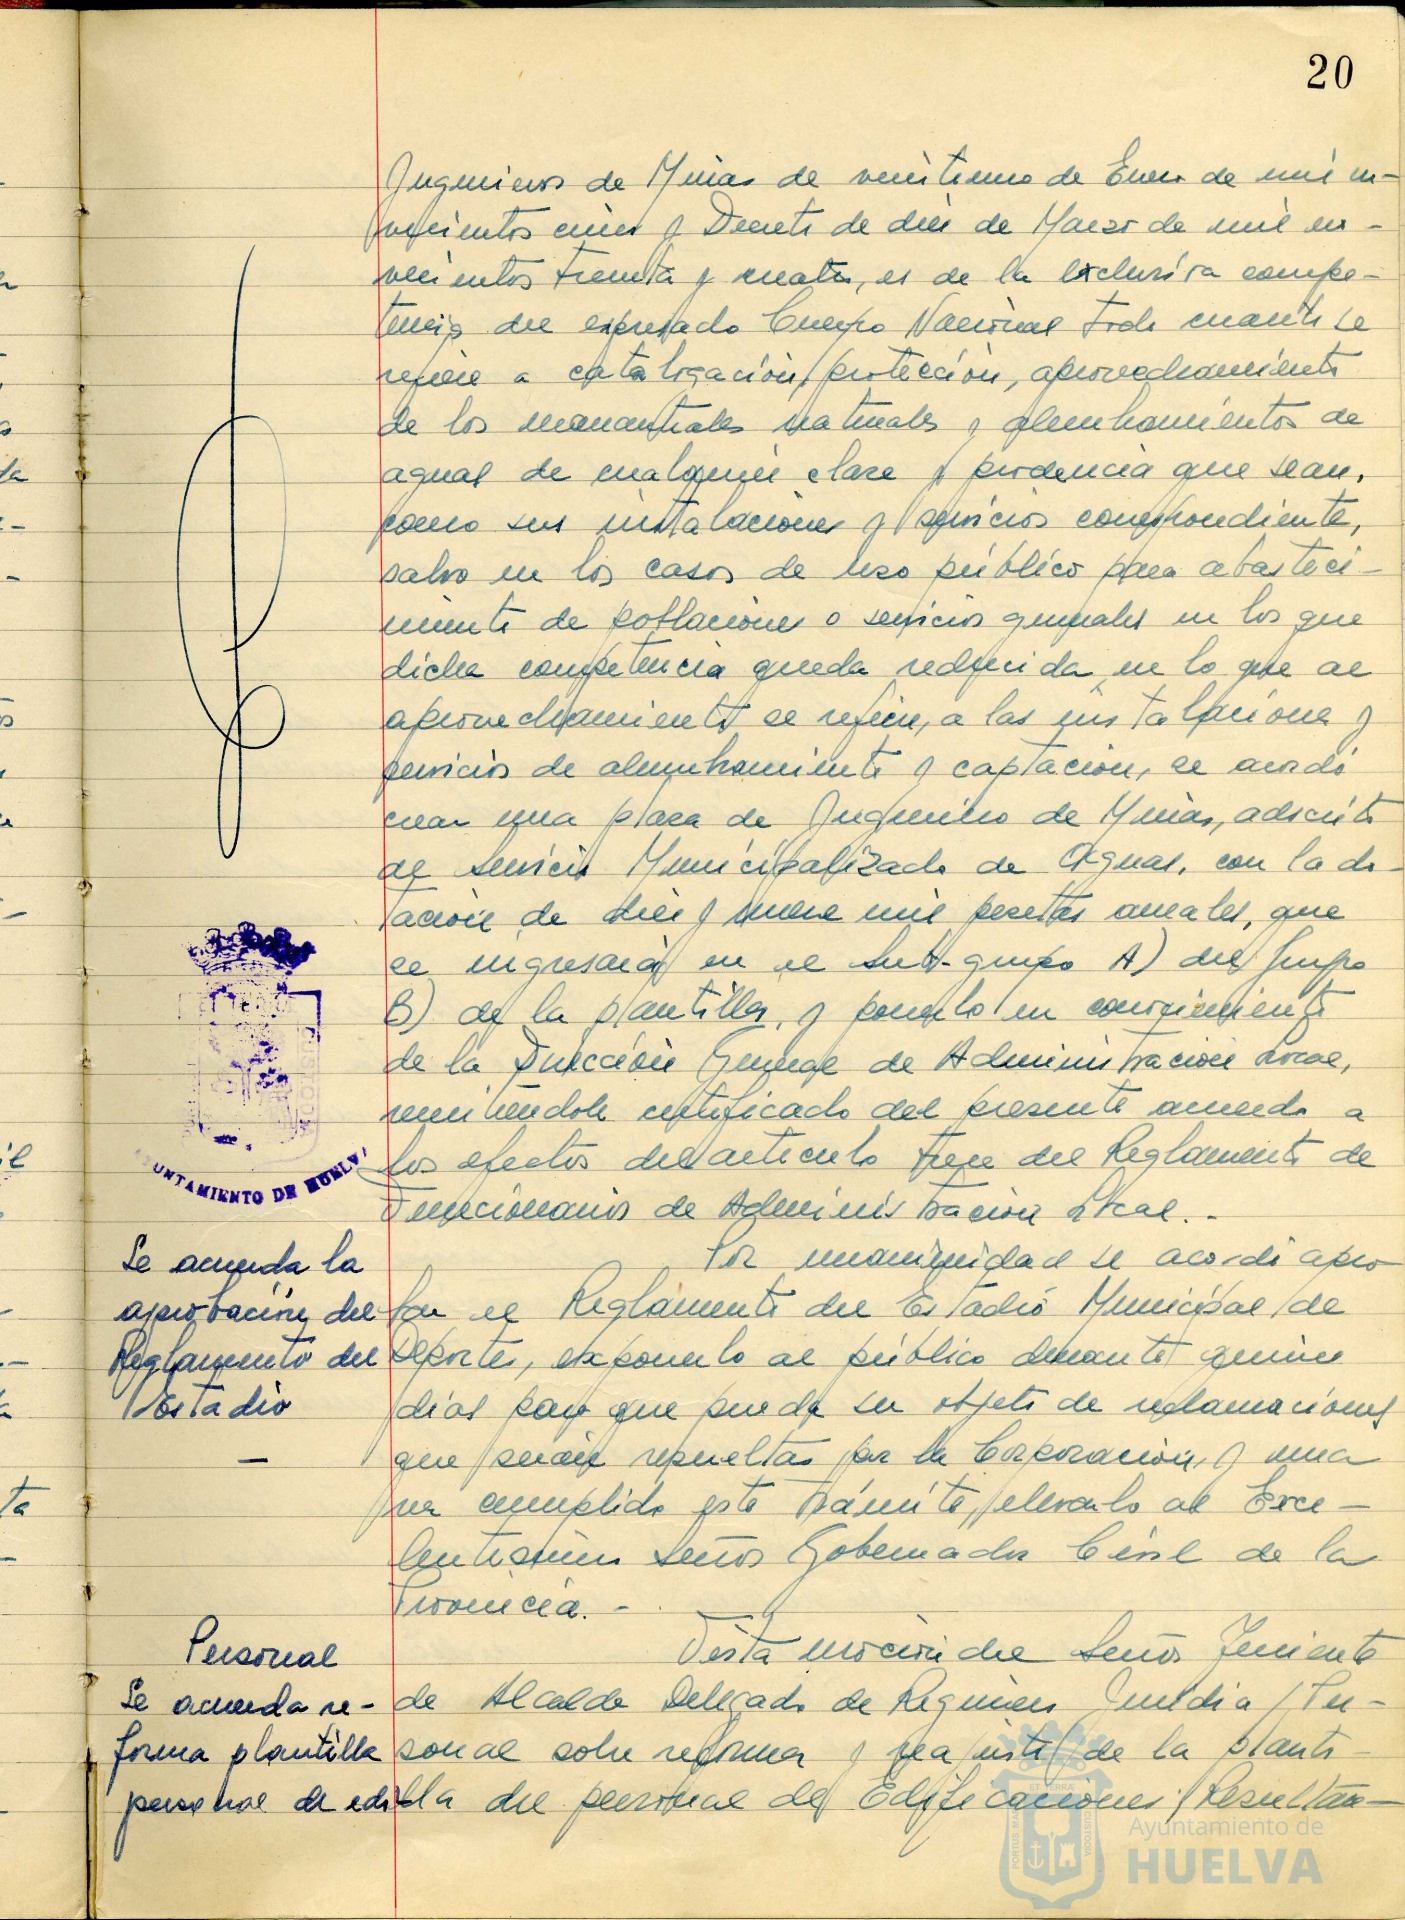 20
Ingenieros de Minas de veintiuno de Enero de mil no-
vecientos cinco y Decreto de diez de Marzo de mil no-
vecientos treinta y cuatro, es de la exclusiva compe-
tencia del expresado Cuerpo Nacional todo cuanto se
refiere a catalogación, protección, aprovechamiento
de los manantiales naturales y alumbramientos de
aguas de cualquier clase y procedencia que sean,
como sus instalaciones y servicios correspondiente,
salvo en los casos de uso público para abasteci-
miento de poblaciones o servicios generales en los que
dicha competencia queda reducida, en lo que al
aprovechamiento se refiere, a las instalaciones y
servicios de alumbramiento y captación, se acordó
crear una plaza de Ingeniero de Minas, adscrita
al Servicio Municipalizado de Aguas, con la do-
tación de diez y nueve mil pesetas anuales, que
se ingresará en el Sub-grupo A) del Grupo
B) de la plantilla, y ponerlo en conocimiento
de la Dirección General de Administración Local,
remitiéndole certificado del presente acuerdo a
los efectos del artículo trece del Reglamento de
Funcionarios de Administración Local.-
AYUNTAMIENTO DE HUELVA
Se acuerda la
aprobación del
Reglamento del
Estadio
Por unanimidad se acordó apro-
bar el Reglamento del Estadio Municipal de
Deportes, exponerlo al público durante quince
días para que pueda ser objeto de reclamaciones
que serán resueltas por la Corporación, y una
vez cumplido este trámite, elevarlo al Exce-
lentísimo Señor Gobernador Civil de la
Provincia.-
Personal
Se acuerda re-
forma plantilla
personal de edi-
Vista moción del Señor Teniente
de Alcalde Delegado de Régimen Jurídico y Per-
sonal sobre reforma y reajuste de la planti-
lla del personal de Edificaciones; Resultan-
Ayuntamiento de
HUELVA